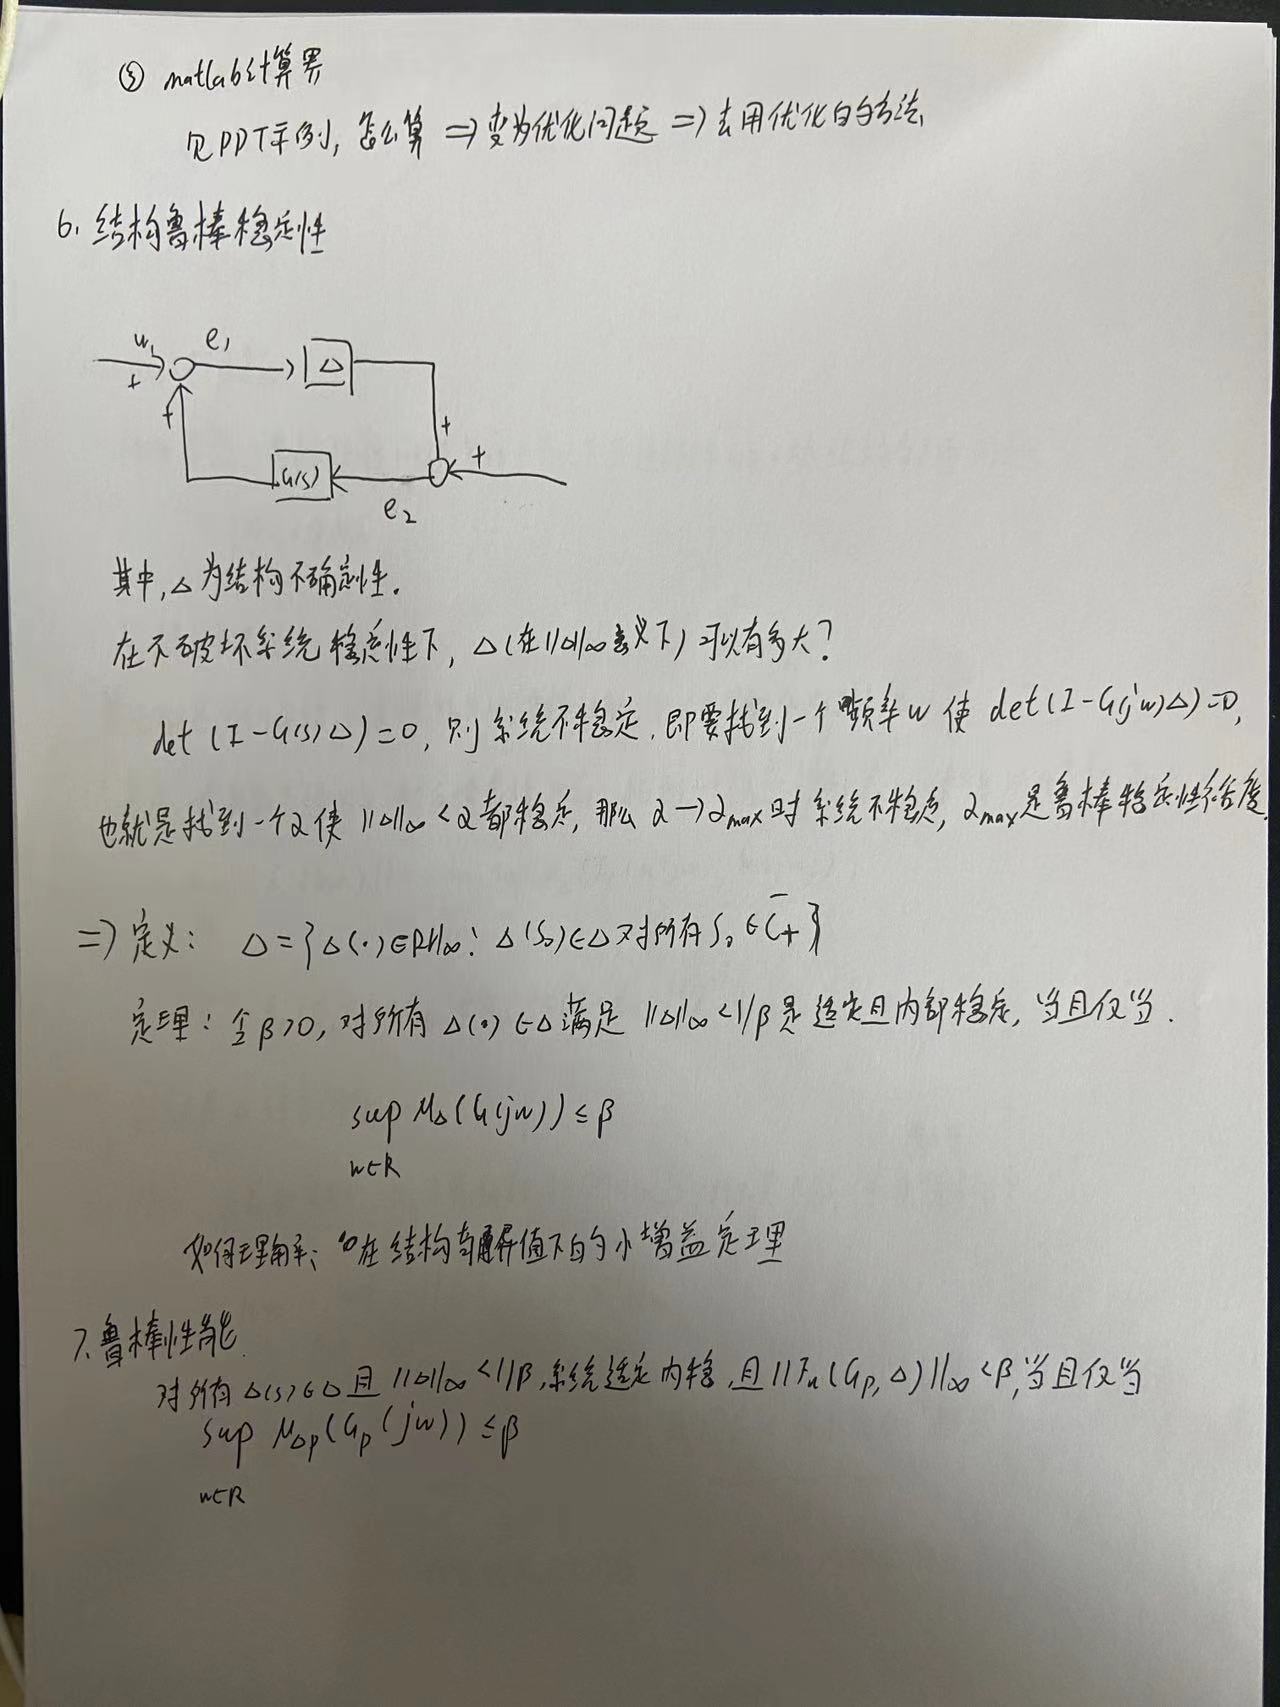 ⑤ matlab计算器
见PPT示例, 怎么算 ⇒ 变为优化问题 ⇒ 去用优化的方法
6. 结构鲁棒稳定性
w₁ e₁ Δ
+ + + +
G(s) e₂
其中, Δ为结构不确定性.
在不破坏系统稳定性下, Δ(在||Δ||∞意义下)可以有多大?
det(I-G(s)Δ)=0, 则系统不稳定. 即要找到一个频率w 使 det(I-G(jw)Δ)=0,
也就是找到一个α使 ||Δ||∞<α都稳定, 那么 α→αmax时系统不稳定, αmax是鲁棒稳定性裕度.
⇒ 定义: Δ={Δ(·)∈RH∞: Δ(S₀)∈Δ对所有S₀∈C̄₊}
定理: 令β>0, 对所有 Δ(·)∈Δ满足 ||Δ||∞<1/β是适定且内部稳定, 当且仅当.
sup μΔ(G(jw))≤β
w∈R
如何理解: 在结构奇异值下的小增益定理
7. 鲁棒性能
对所有Δ(s)∈Δ且||Δ||∞<1/β, 系统适定内稳, 且||Fu(Gp, Δ)||∞<β, 当且仅当
sup μΔp(Gp(jw))≤β
w∈R